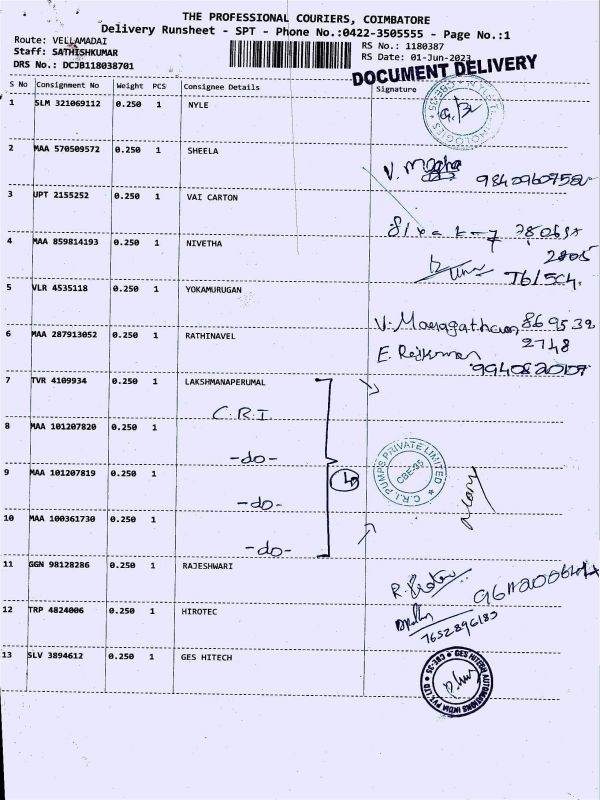 THE PROFESSIONAL COURIERS, COIMBATORE
Delivery Runsheet - SPT - Phone No.:0422-3505555 - Page No.:1
Route: VELLAMADAI
Staff: SATHISHKUMAR
DRS No.: DCJB118038701
RS No.: 1180387
RS Date: 01-Jun-2023
DOCUMENT DELIVERY
S No Consignment No Weight PCS Consignee Details Signature
1 SLM 321069112 0.250 1 NYLE
2 MAA 570509572 0.250 1 SHEELA
3 UPT 2155252 0.250 1 VAI CARTON
4 MAA 859814193 0.250 1 NIVETHA
5 VLR 4535118 0.250 1 YOKAMURUGAN
6 MAA 287913052 0.250 1 RATHINAVEL
7 TVR 4109934 0.250 1 LAKSHMANAPERUMAL
C.R.I
8 MAA 101207820 0.250 1
-do-
9 MAA 101207819 0.250 1
-do-
C.R.I. PUMPS PRIVATE LIMITED
CBE-35
10 MAA 100361730 0.250 1
-do-
11 GGN 98128286 0.250 1 RAJESHWARI
12 TRP 4824006 0.250 1 HIROTEC
7652896183
13 SLV 3894612 0.250 1 GES HITECH